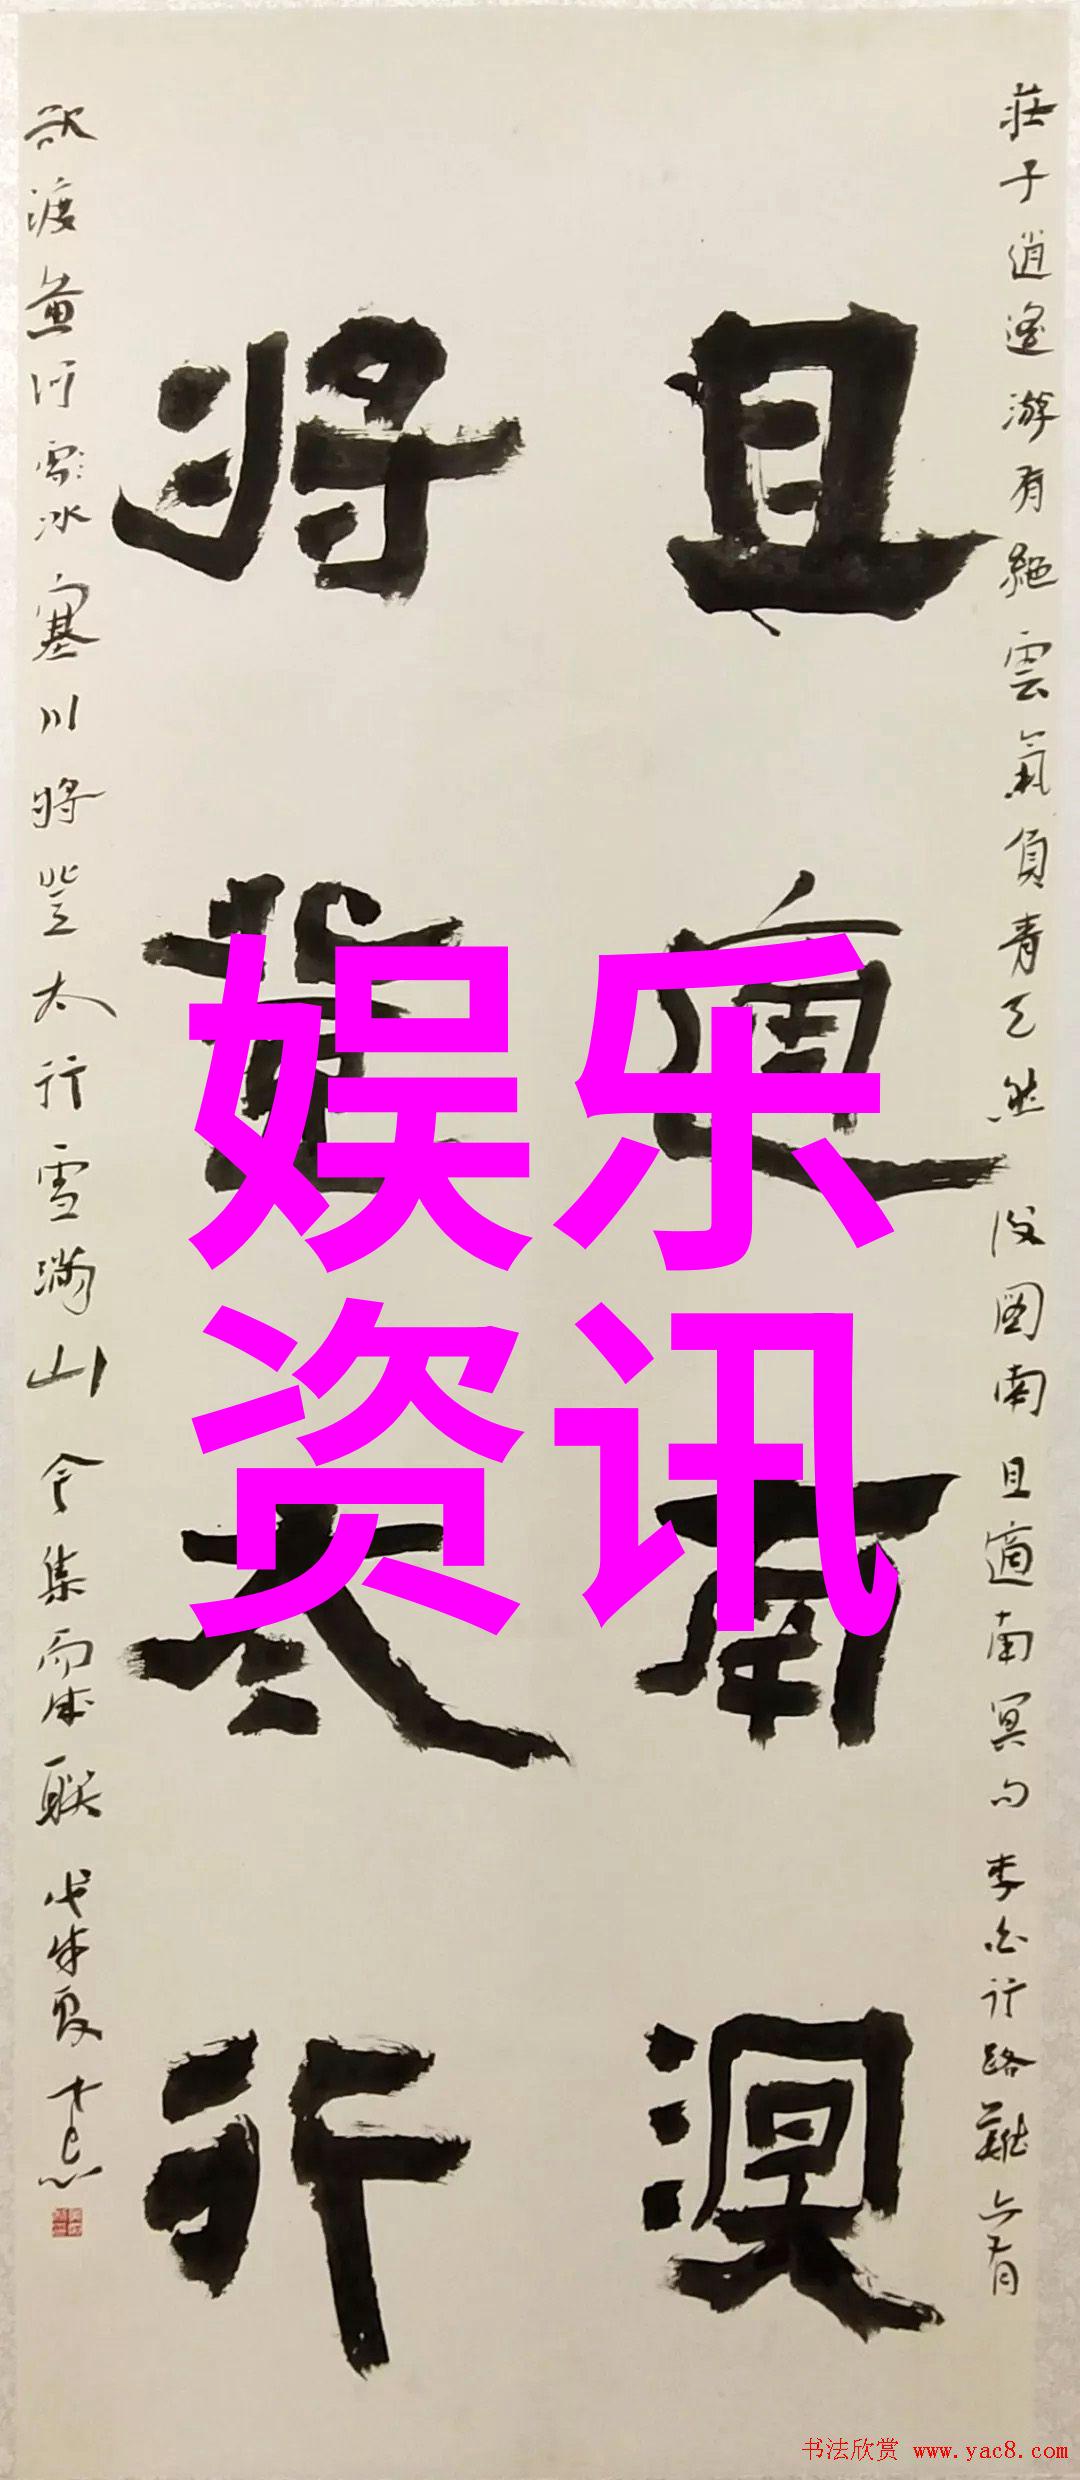 莊子逍遙游有絕雲氣負青天然後圖南且適南冥句李白行路難亦有
且適南溟
將登太行
欲渡黃河雪冰塞川將登太行雪滿山今集而成聯戊戌夏
娱乐
资讯
书法欣赏 www.yac8.com